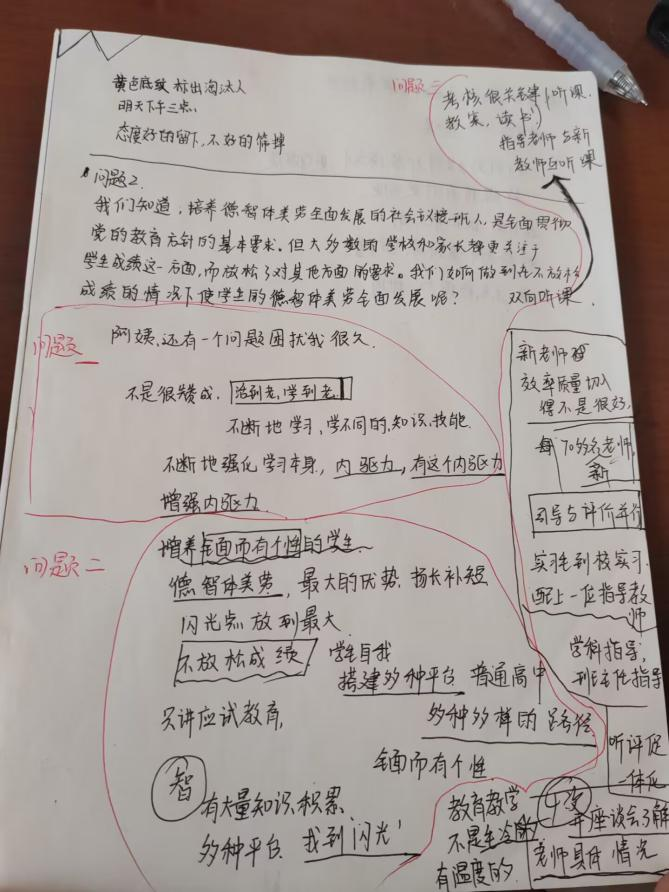 黄色底纹 标出淘汰人
明天下午三点.
态度好的留下,不好的筛掉
问题三
考核很关键(听课.
教案,读书)
指导老师与新
教师互听课
问题2.
我们知道,培养德智体美劳全面发展的社会主义接班人,是全面贯彻
党的教育方针的基本要求。但大多数的学校和家长都更关注于
学生成绩这一方面,而放松了对其他方面的要求。我们如何做到在不放松
成绩的情况下使学生的德智体美劳全面发展呢?
双向听课.
问题一
阿姨,还有一个问题困扰我很久.
不是很赞成. 活到老,学到老.
不断地学习、学不同的,知识,技能.
不断地强化学习本身, 内驱力,有这个内驱力
增强内驱力.
新老师
效率质量切入
得不是很好,
每 70多名老师,
新
引导与评价并行
实习生到校实习.
配上一位指导教
师
学科指导,
班主任指导
听评促
一体化
问题二
培养全面而有个性的学生.
德智体美劳, 最大的优势. 扬长补短
闪光点放到最大
不放松成绩. 学生自我
搭建多种平台 普通高中
只讲应试教育,
多种多样的路径.
全面而有个性
智
有大量知识积累.
多种平台 找到闪光
教育教学
不是生冷的
有温度的.
座谈会了解
老师具体情况